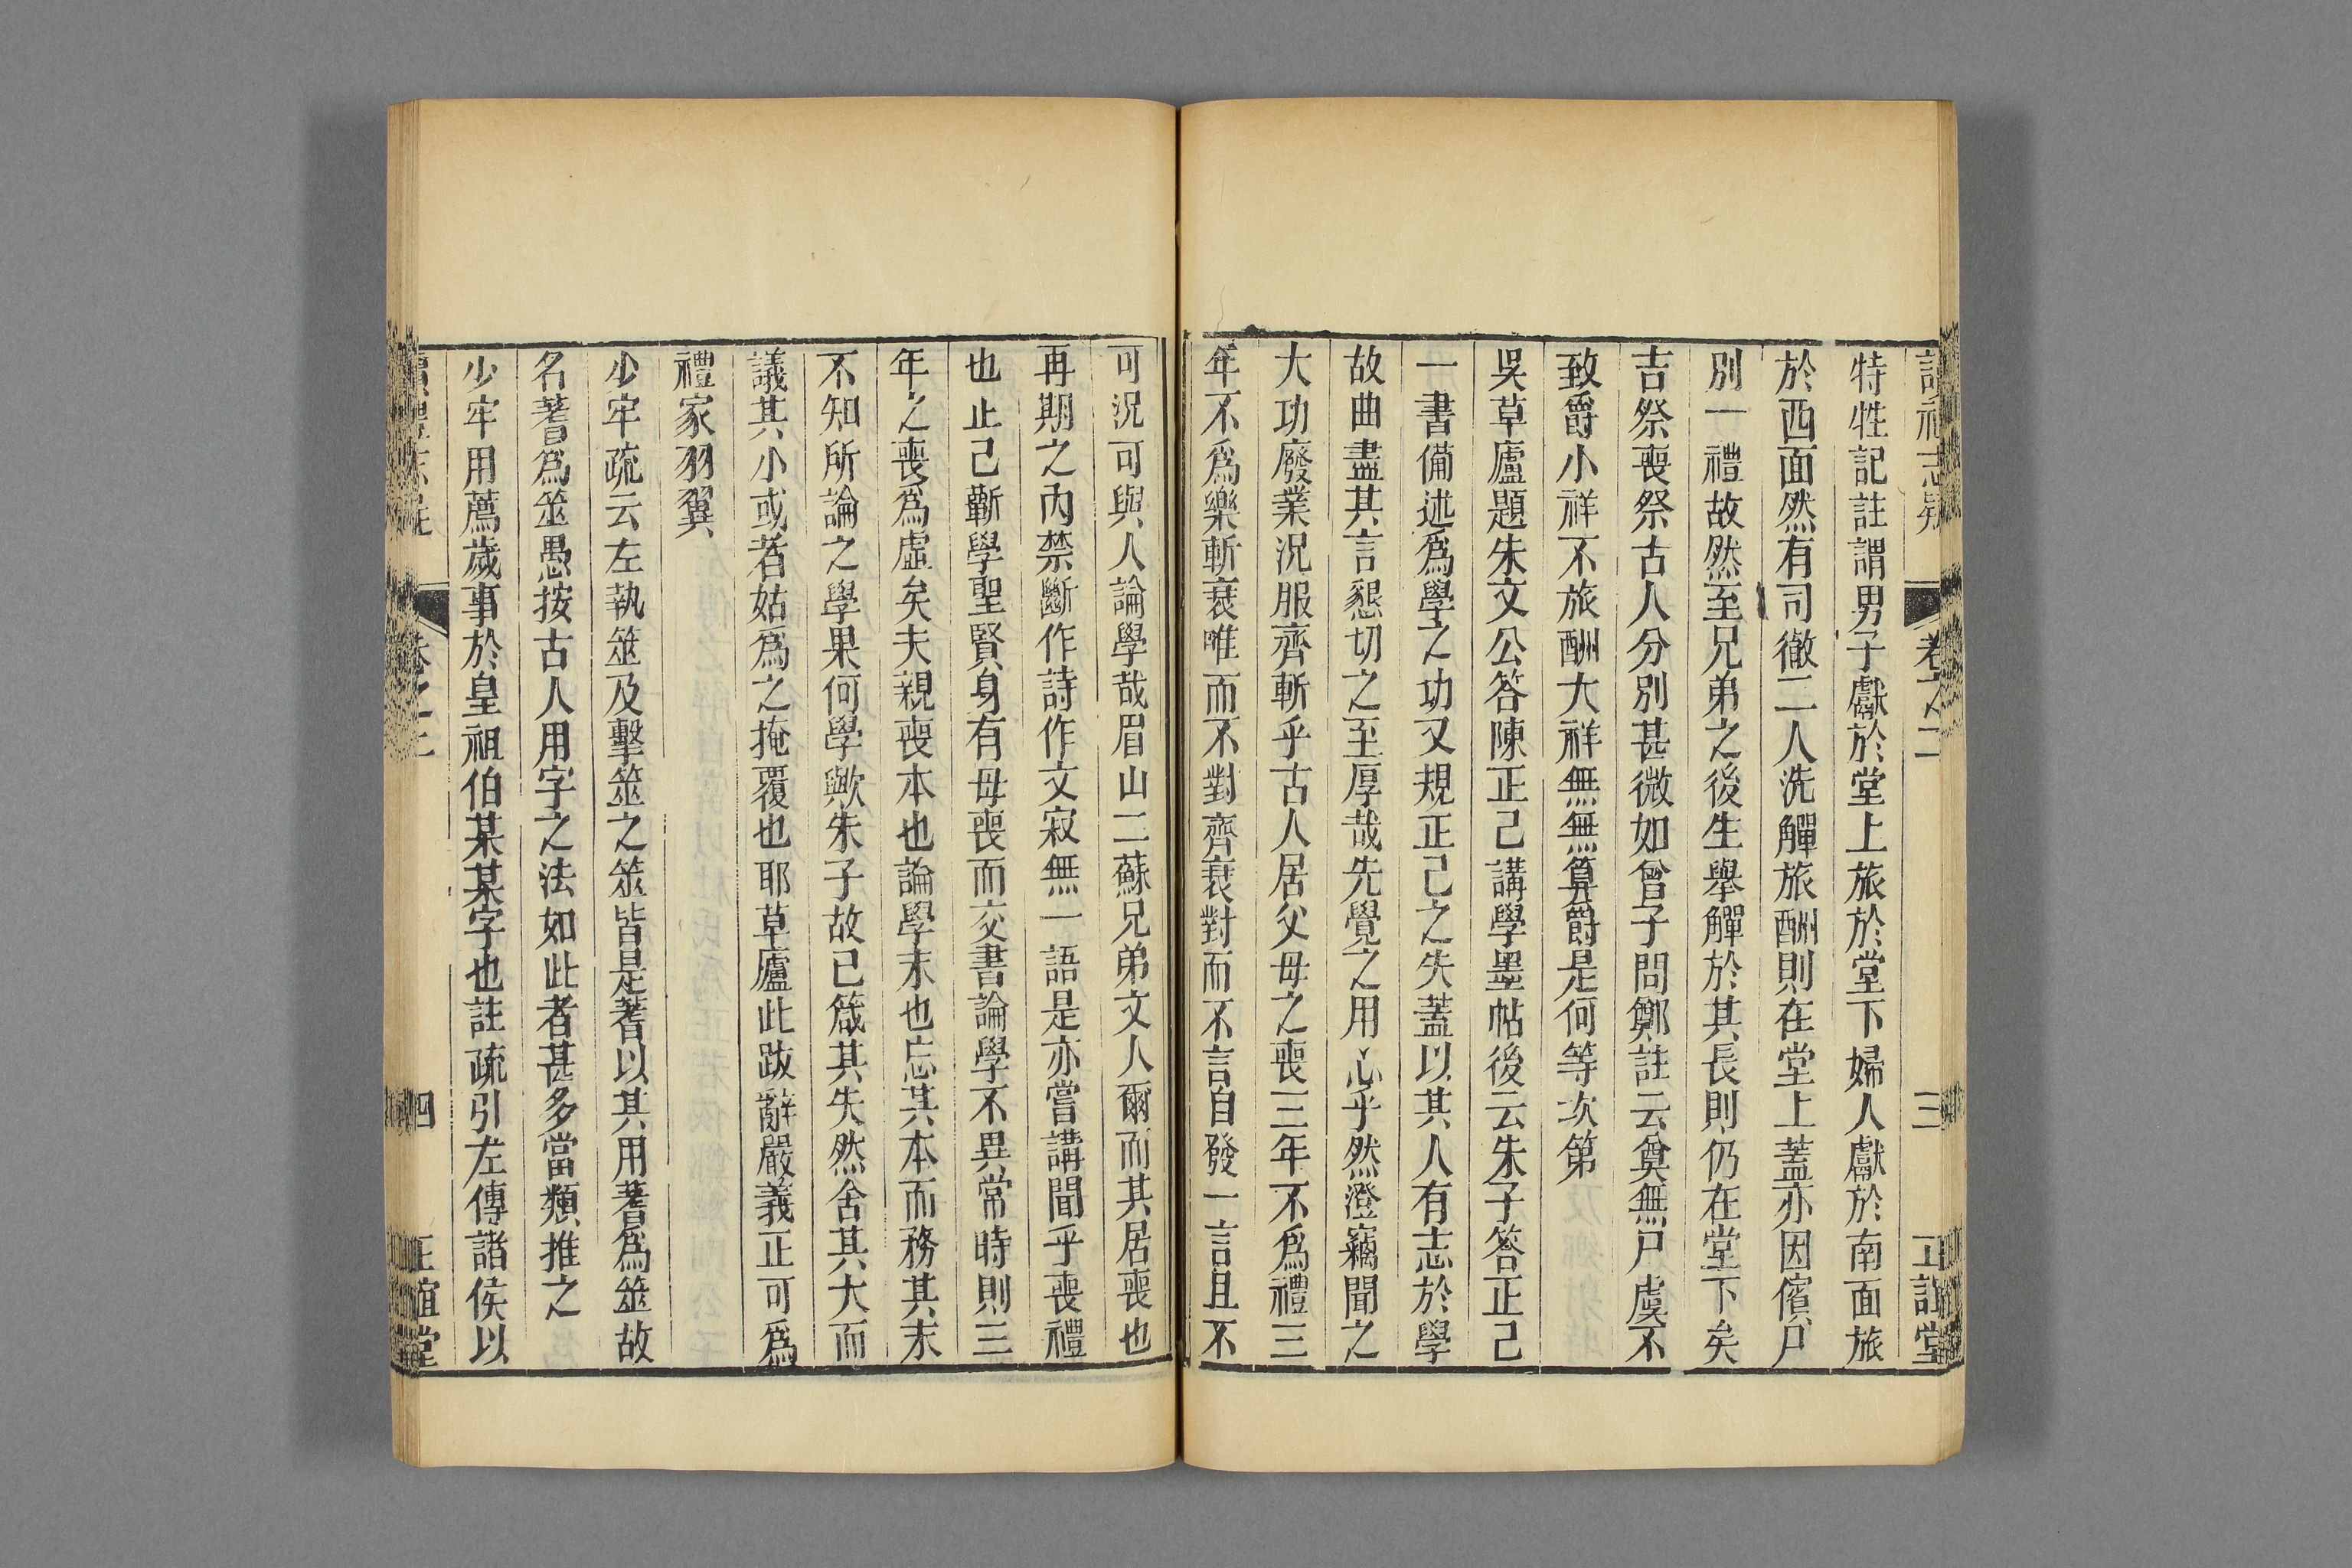 讀禮志疑 卷之二 三 正誼堂
特牲記註謂男子獻於堂上旅於堂下婦人獻於南面旅
於西面然有司徹二人洗觶旅酬則在堂上蓋亦因儐尸
別一禮故然至兄弟之後生舉觶於其長則仍在堂下矣
吉祭喪祭古人分別甚微如曾子問鄭註云奠無尸虞不
致爵小祥不旅酬大祥無無算爵是何等次第
吳草廬題朱文公答陳正己講學墨帖後云朱子答正己
一書備述為學之功又規正己之失蓋以其人有志於學
故曲盡其言懇切之至厚哉先覺之用心乎然澄竊聞之
大功廢業況服齊斬乎古人居父母之喪三年不為禮三
年不為樂斬衰唯而不對齊衰對而不言自發一言且不
可況可與人論學哉眉山二蘇兄弟文人爾而其居喪也
再期之內禁斷作詩作文寂無一語是亦嘗講聞乎喪禮
也止己蘄學聖賢身有母喪而交書論學不異常時則三
年之喪為虛矣夫親喪本也論學末也忘其本而務其末
不知所論之學果何學歟朱子故已箴其失然舍其大而
議其小或者姑為之掩覆也耶草廬此跋辭嚴義正可為
禮家羽翼
少牢疏云左執筮及擊筮之筮皆是蓍以其用蓍為筮故
名蓍為筮愚按古人用字之法如此者甚多當類推之
少牢用薦歲事於皇祖伯某某字也註疏引左傳諸侯以
卷之二 四 正誼堂